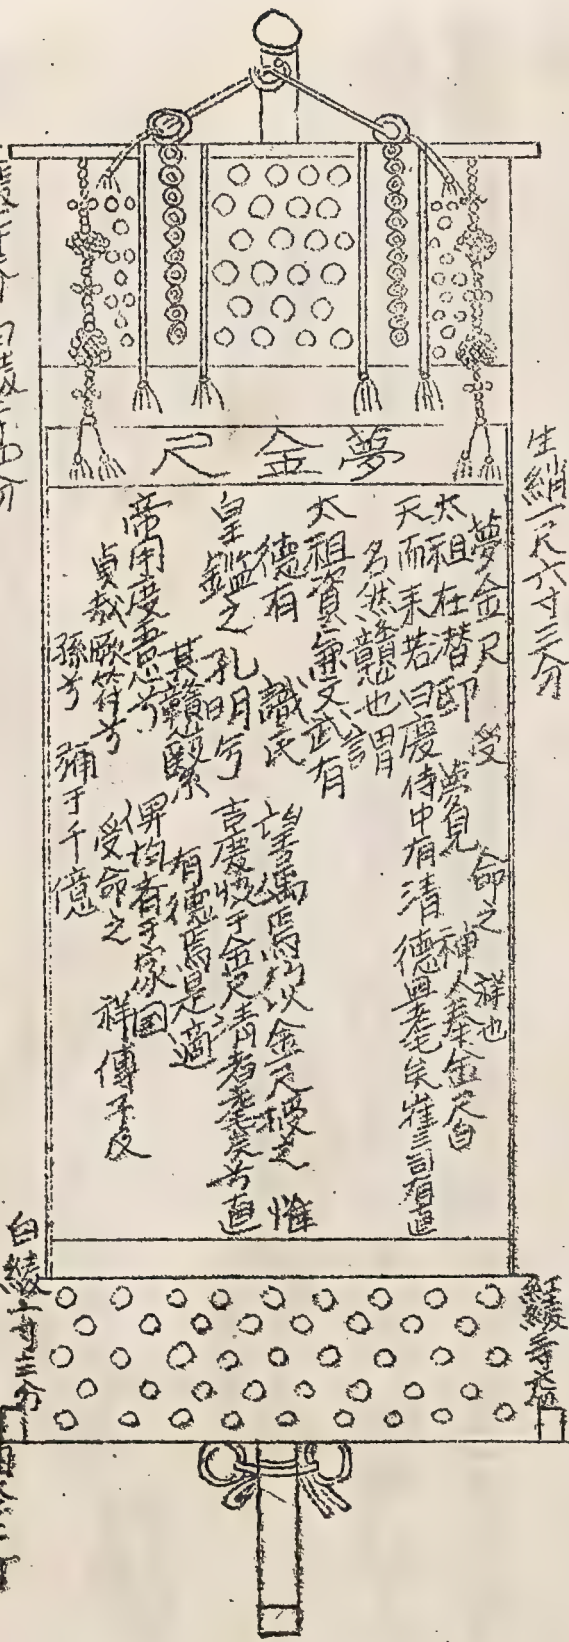 夢金尺
生綃一尺六寸三分
夢金尺 受 命之 祥也
太祖在潜邸 夢見 神人奉金尺自
天而来若曰慶侍中有清德且耄矣崔三司有直
名然戇也謂
太祖資兼文武有
德有 識民 望屬焉乃以金尺授之 惟
皇鑑之孔明兮 吉夢恊于金尺清者耄矣兮直
其戇緊 有德焉是適
帝用度吾心兮 俾均齊于家國
貞哉厥符兮 受命之 祥傳子及
孫兮 彌于千億
紅綾
白綾